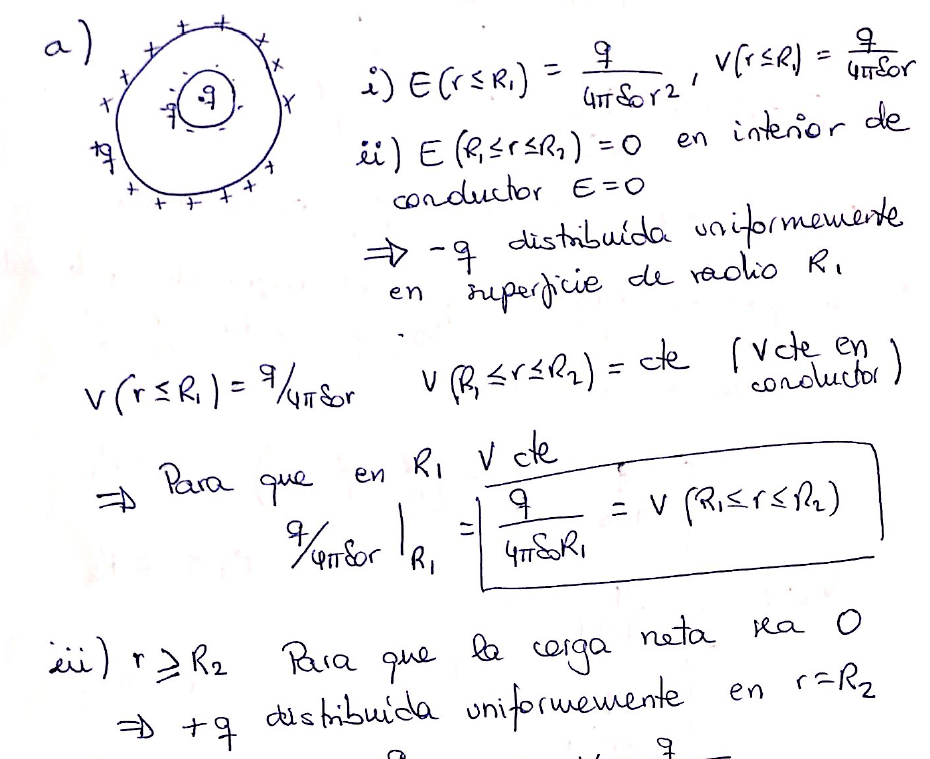 a)
+ + + + + × × + + + + + + + +
q
-q
+q
i) E(r ≤ R₁) = q/4πε₀r², V(r ≤ R₁) = q/4πε₀r
ii) E(R₁ ≤ r ≤ R₂) = 0 en interior de
conductor E = 0
⇒ -q distribuída uniformemente
en superficie de radio R₁
V(r ≤ R₁) = q/4πε₀r V(R₁ ≤ r ≤ R₂) = cte (V cte en
conductor)
⇒ Para que en R₁ V cte
q/4πε₀r |R₁ = q/4πε₀R₁ = V(R₁ ≤ r ≤ R₂)
iii) r ≥ R₂ Para que la carga neta sea 0
⇒ +q distribuida uniformemente en r = R₂